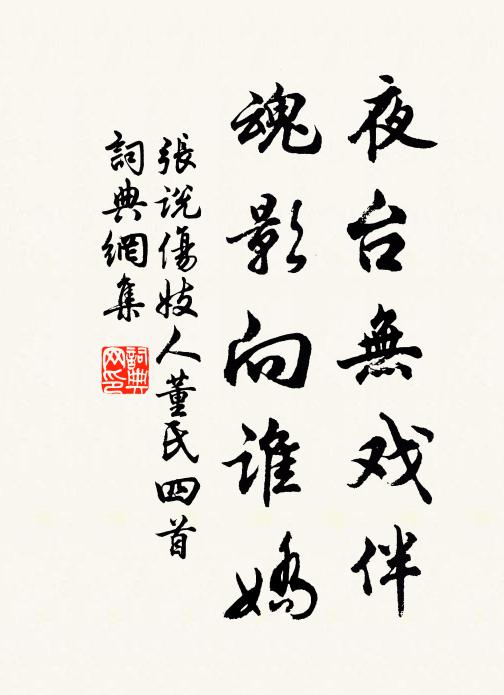 夜台無戏伴
魂影向谁嬌
張说傷妓人董氏四首
詞典網集
詞典网印